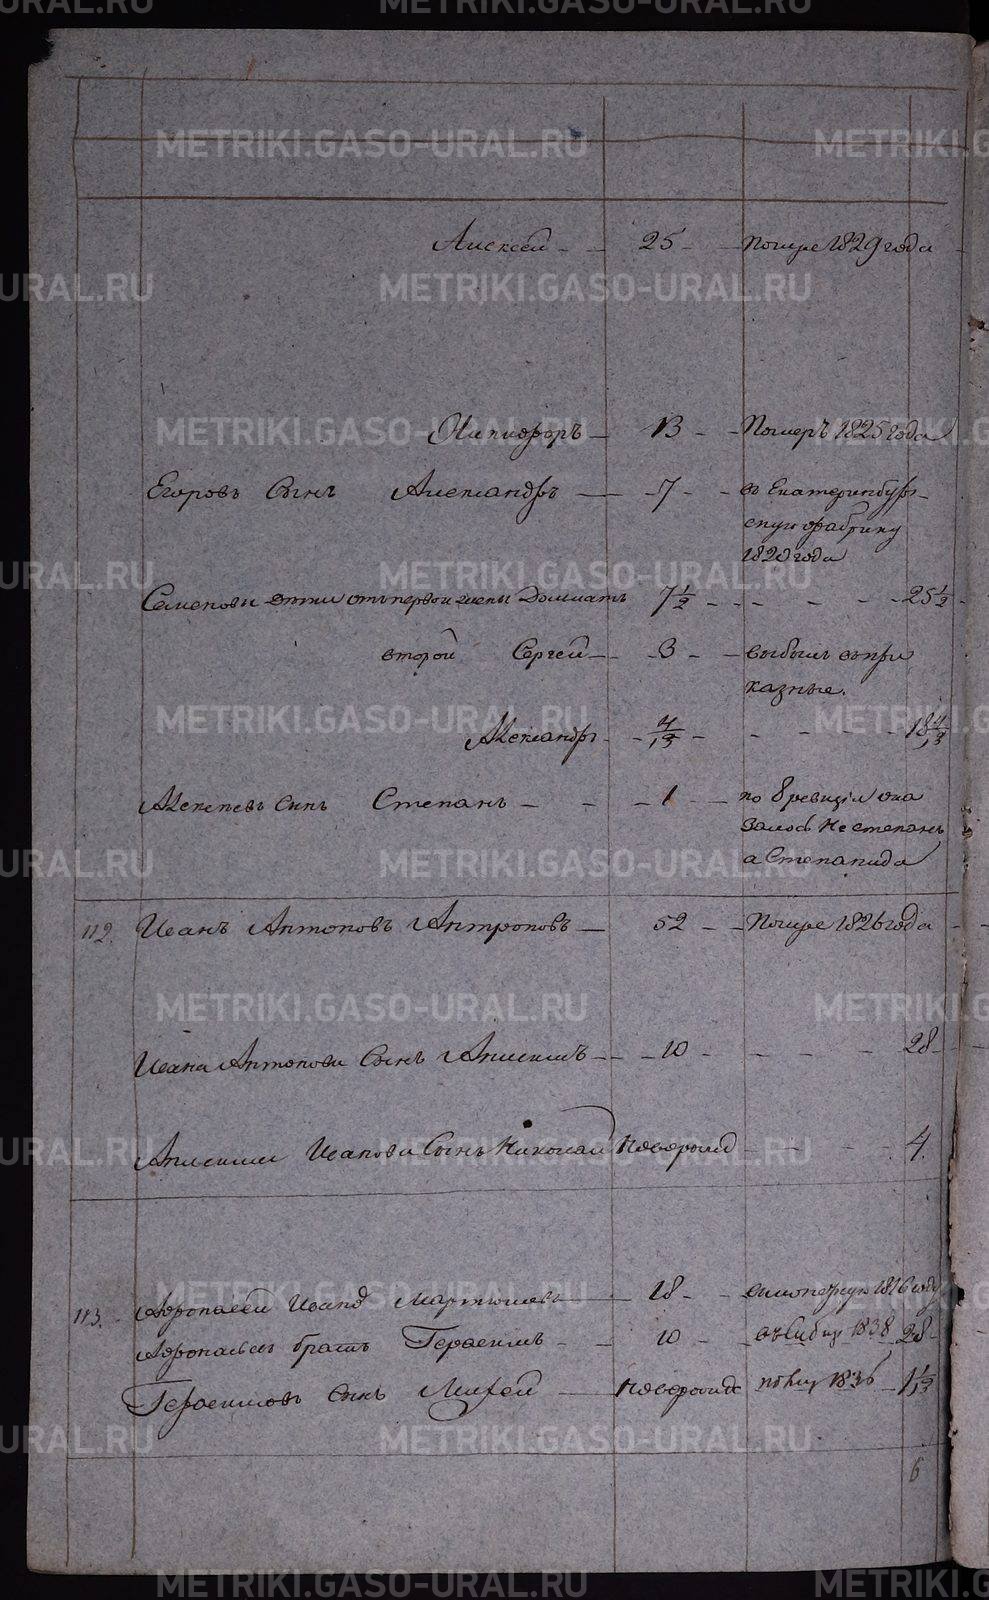 Алексей 25 Помре 1829 года
Никифоръ 13 Померъ 1825 года
Егоровъ Сынъ Александръ 7 въ Екатеринбург-
скую фабрику
1820 года
Семеновы дети отъ первой жены Долматъ 7 1/2 25 1/2
второй Сергей 3 выбылъ въ при
казные.
Александръ
Степанъ 1 по 8 ревизiи ока
залось не степанъ
а Степанида
112. Иванъ Антоновъ Антроповъ 52 Помре 1826 года
Ивана Антонова Сынъ Анисимъ 10 28
Анисима Иванова Сынъ Николай новорожд 4.
113. Афонасей Иванъ 18 1816 году
Афонасьевъ братъ Герасимъ 10 1838 28
Герасимовъ сынъ новорожде 1836
6
METRIKI.GASO-URAL.RU